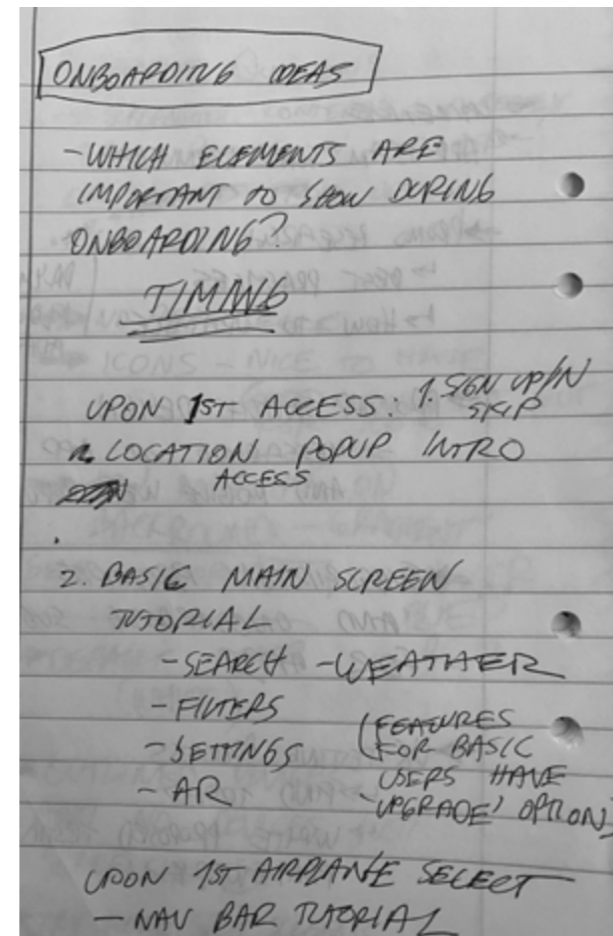 ONBOARDING IDEAS
- WHICH ELEMENTS ARE
IMPORTANT TO SHOW DURING
ONBOARDING?
TIMING
UPON 1ST ACCESS: 1. SIGN UP/IN
SKIP
2. LOCATION POPUP INTRO
ACCESS
2. BASIC MAIN SCREEN
TUTORIAL
- SEARCH - WEATHER
- FILTERS
- SETTINGS (FEATURES
FOR BASIC
USERS HAVE
- AR
UPGRADE' OPTION)
UPON 1ST AIRPLANE SELECT
- NAV BAR TUTORIAL